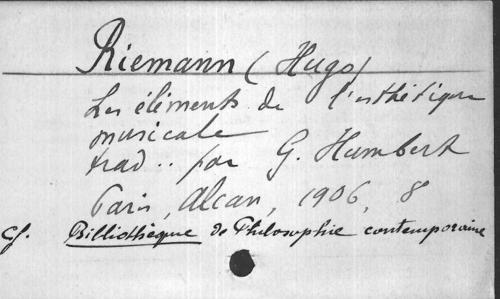 Riemann (Hugo)
Les éléments de l'esthétique
musicale
trad.. par G. Humbert
Paris, Alcan, 1906, 8
Cf. Billiothèque de Philosophie contemporaine